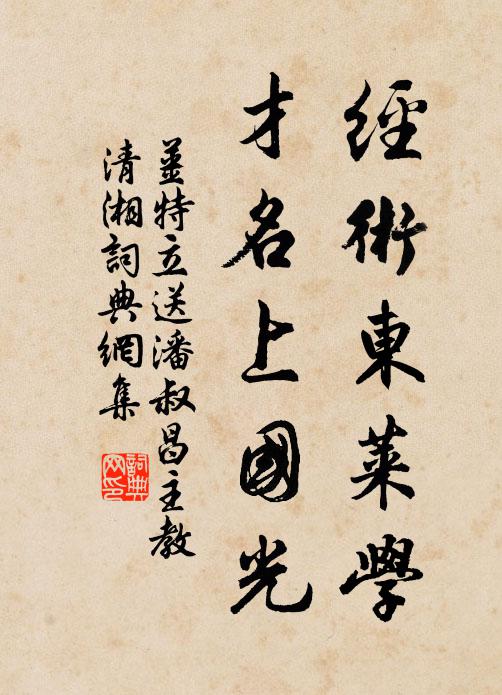 經術東萊學
才名上國光
薑特立送潘叔昌主教
清湘詞典網集
詞典網印